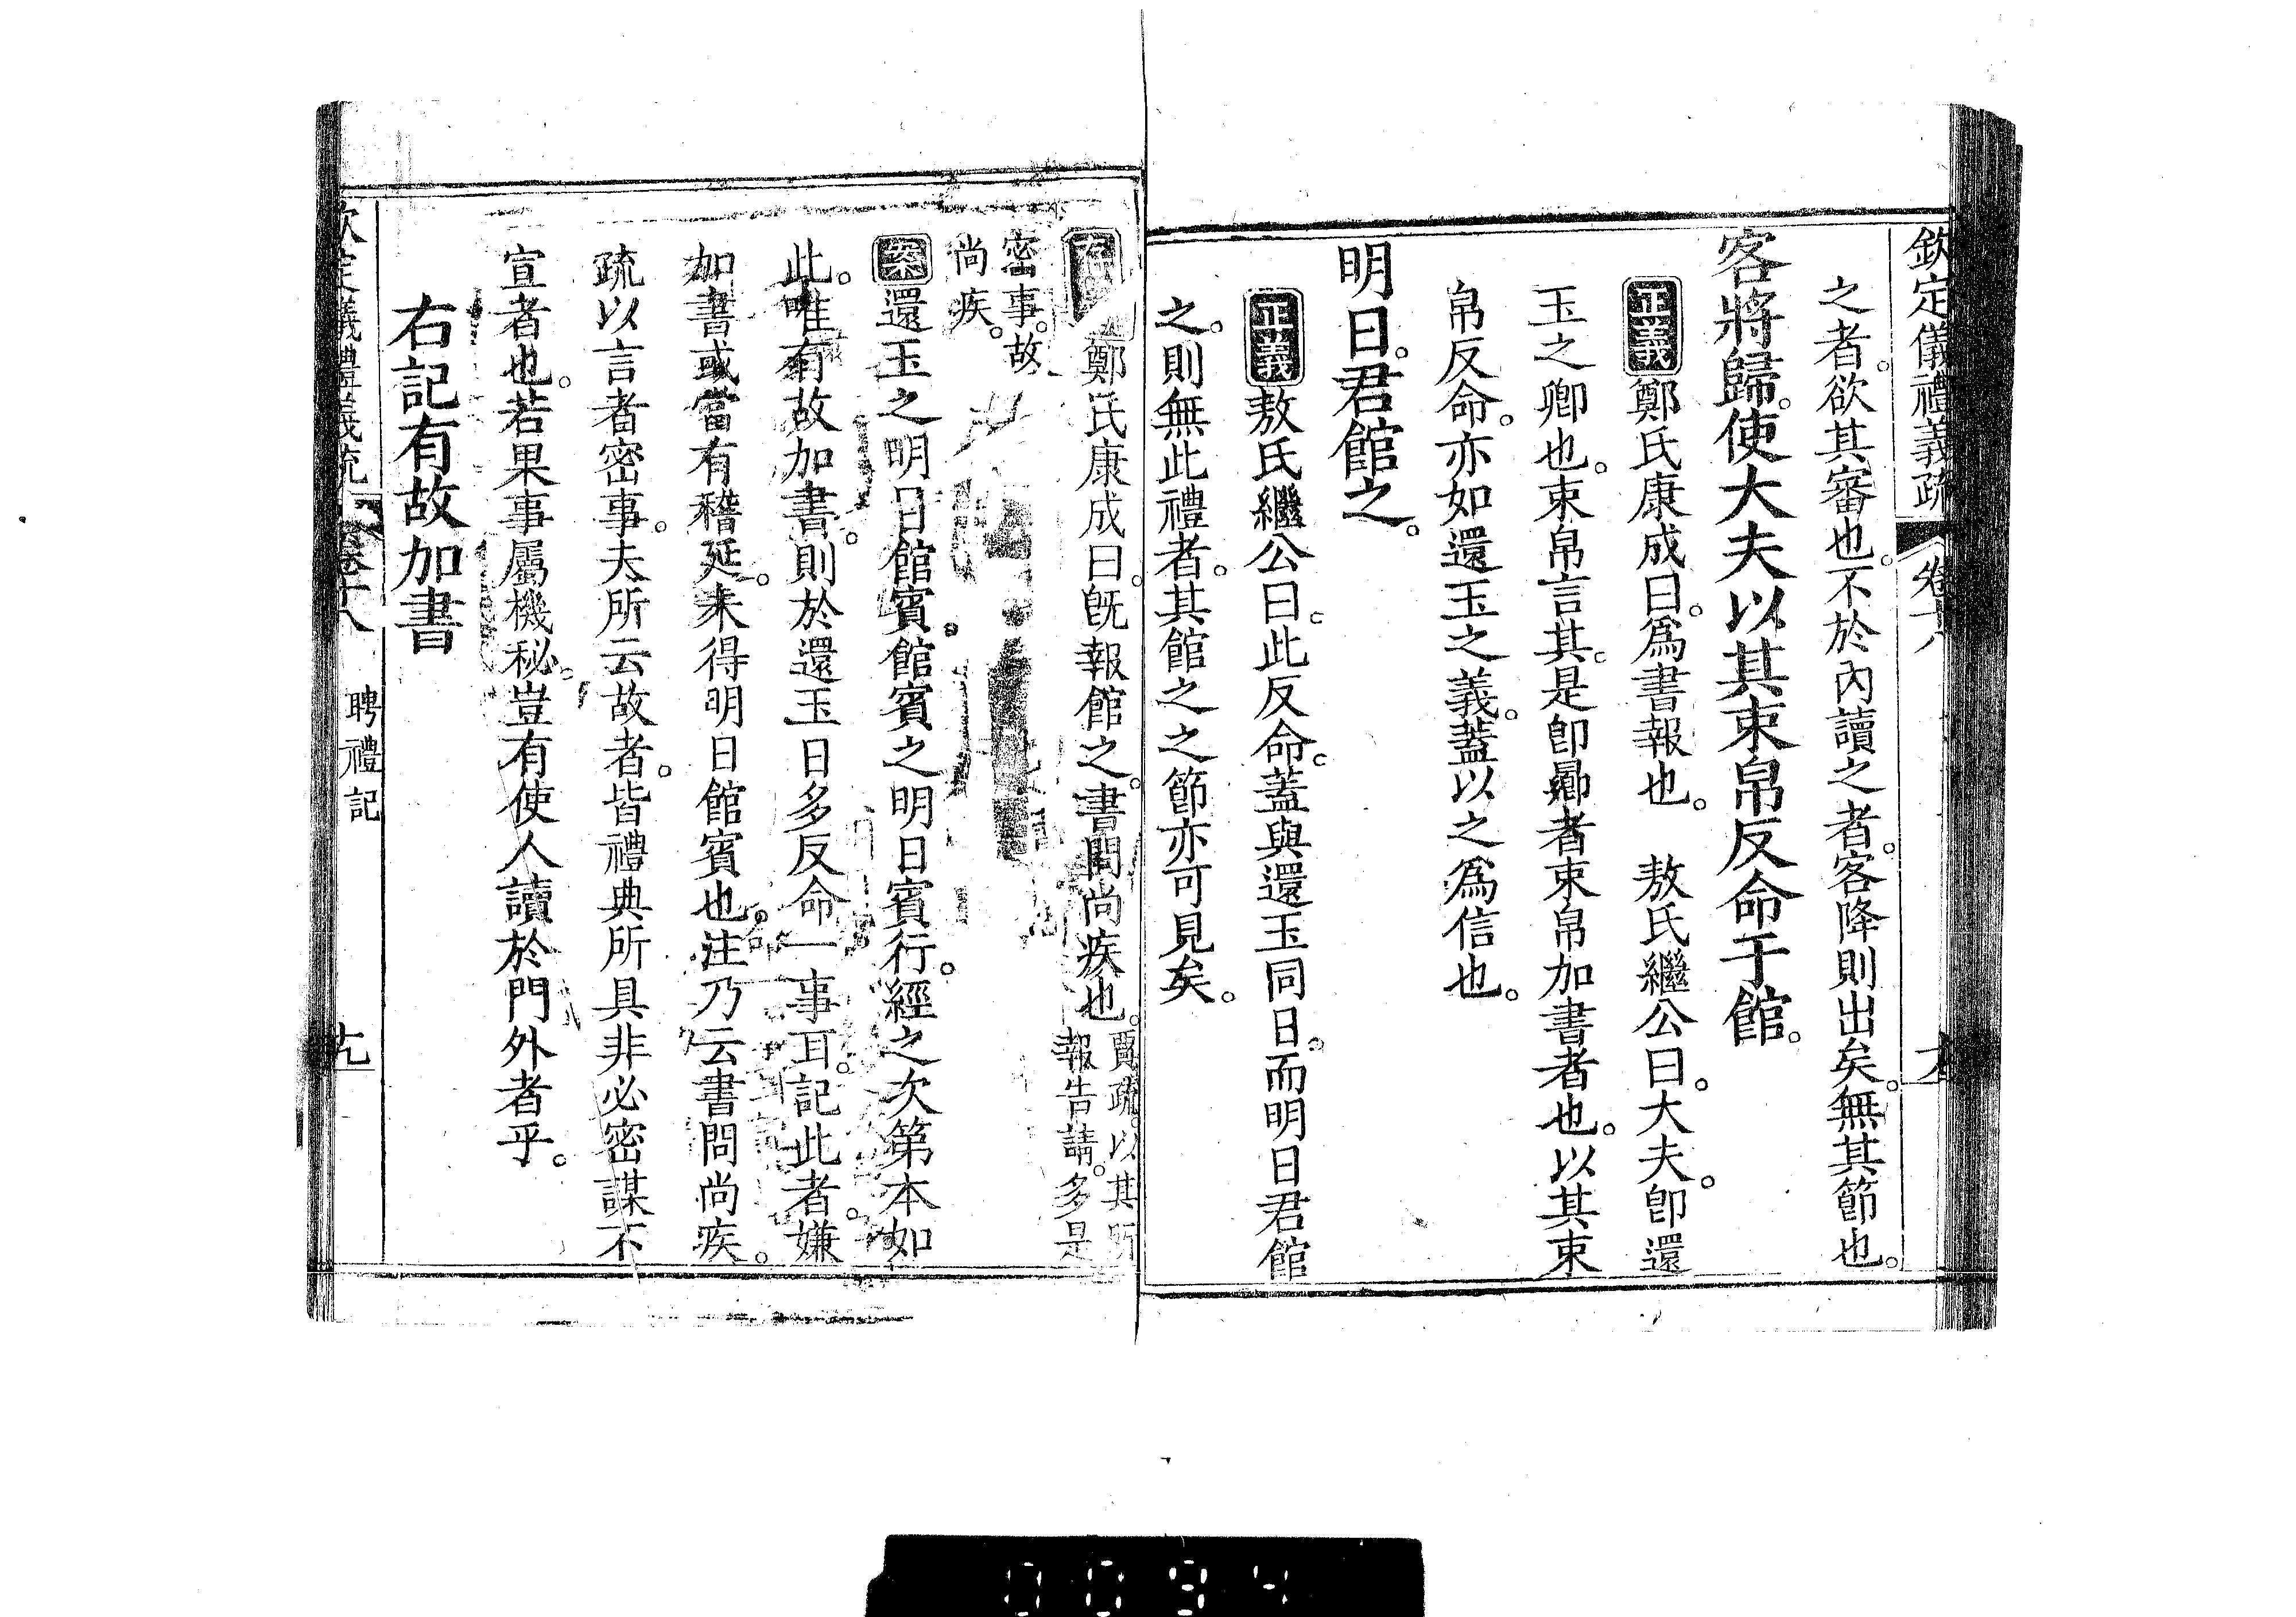 欽定儀禮義疏 卷十八
之者。欲其審也。不於內讀之者。客降則出矣。無其節也。
客將歸。使大夫以其束帛反命于館。
正義 鄭氏康成曰。爲書報也。 敖氏繼公曰。大夫。卽還
玉之卿也。束帛言其。是卽曏者束帛加書者也。以其束
帛反命。亦如還玉之義。蓋以之爲信也。
明日。君館之。
正義 敖氏繼公曰。此反命。蓋與還玉同日。而明日君館
之。則無此禮者。其館之之節亦可見矣。
鄭氏康成曰。旣報館之。書問尚疾也。
賈疏。以其所
報告請。多是
密事。故
尚疾。
案 還玉之明日館賓。館賓之明日賓行。經之次第本如
此。唯有故加書。則於還玉日多反命一事耳。記此者。嫌
加書或當有稽延。未得明日館賓也。注乃云書問尚疾。
疏以言者密事。夫所云故者。皆禮典所具。非必密謀不
宣者也。若果事屬機秘。豈有使人讀於門外者乎。
右記有故加書
欽定儀禮義疏 卷十八 聘禮記 十九
0094